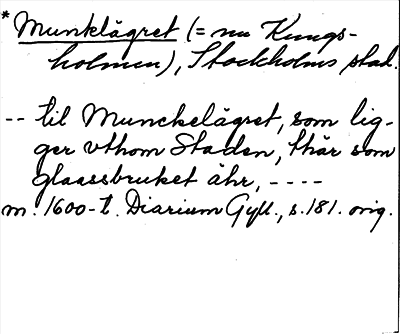 * Munklägret (= nu Kungs-
holmen), Stockholms stad.
-- til Munckelägret, som lig-
ger vthom Staden, thär som
glaassbruket ähr, ----
m. 1600-t. Diarium Gyll., s. 181. orig.